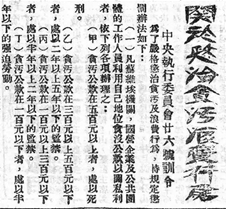 關於懲治貪污浪費行為
中央執行委員會廿六號訓令
為了嚴格懲治貪污及浪費行為，特規定懲
罰辦法如下：
（一）凡蘇維埃機關，國營企業及公共團
體的工作人員利用自己地位貪沒公款以圖私利
者，依下列各項辦理之：
（甲）貪污公款在五百元以上者，處以死
刑。
（乙）貪污公款在三百元以上五百元以下
者，處以二年以上五年以下的監禁。
（丙）貪污公款在一百元以上三百元以下
者，處以半年以上二年以下的監禁。
（丁）貪污公款在一百元以下者，處以半
年以下的強迫勞動。